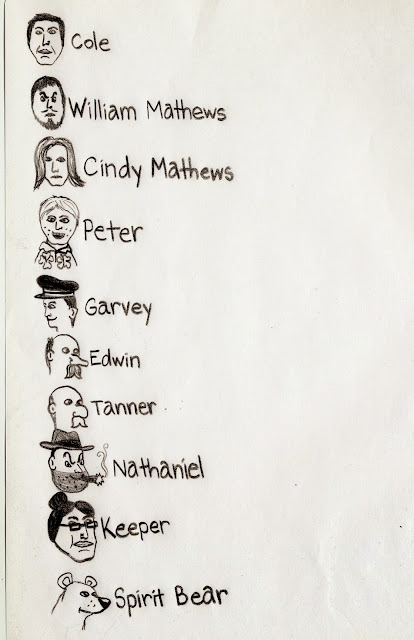 Cole
William Mathews
Cindy Mathews
Peter
Garvey
Edwin
Tanner
Nathaniel
Keeper
Spirit Bear